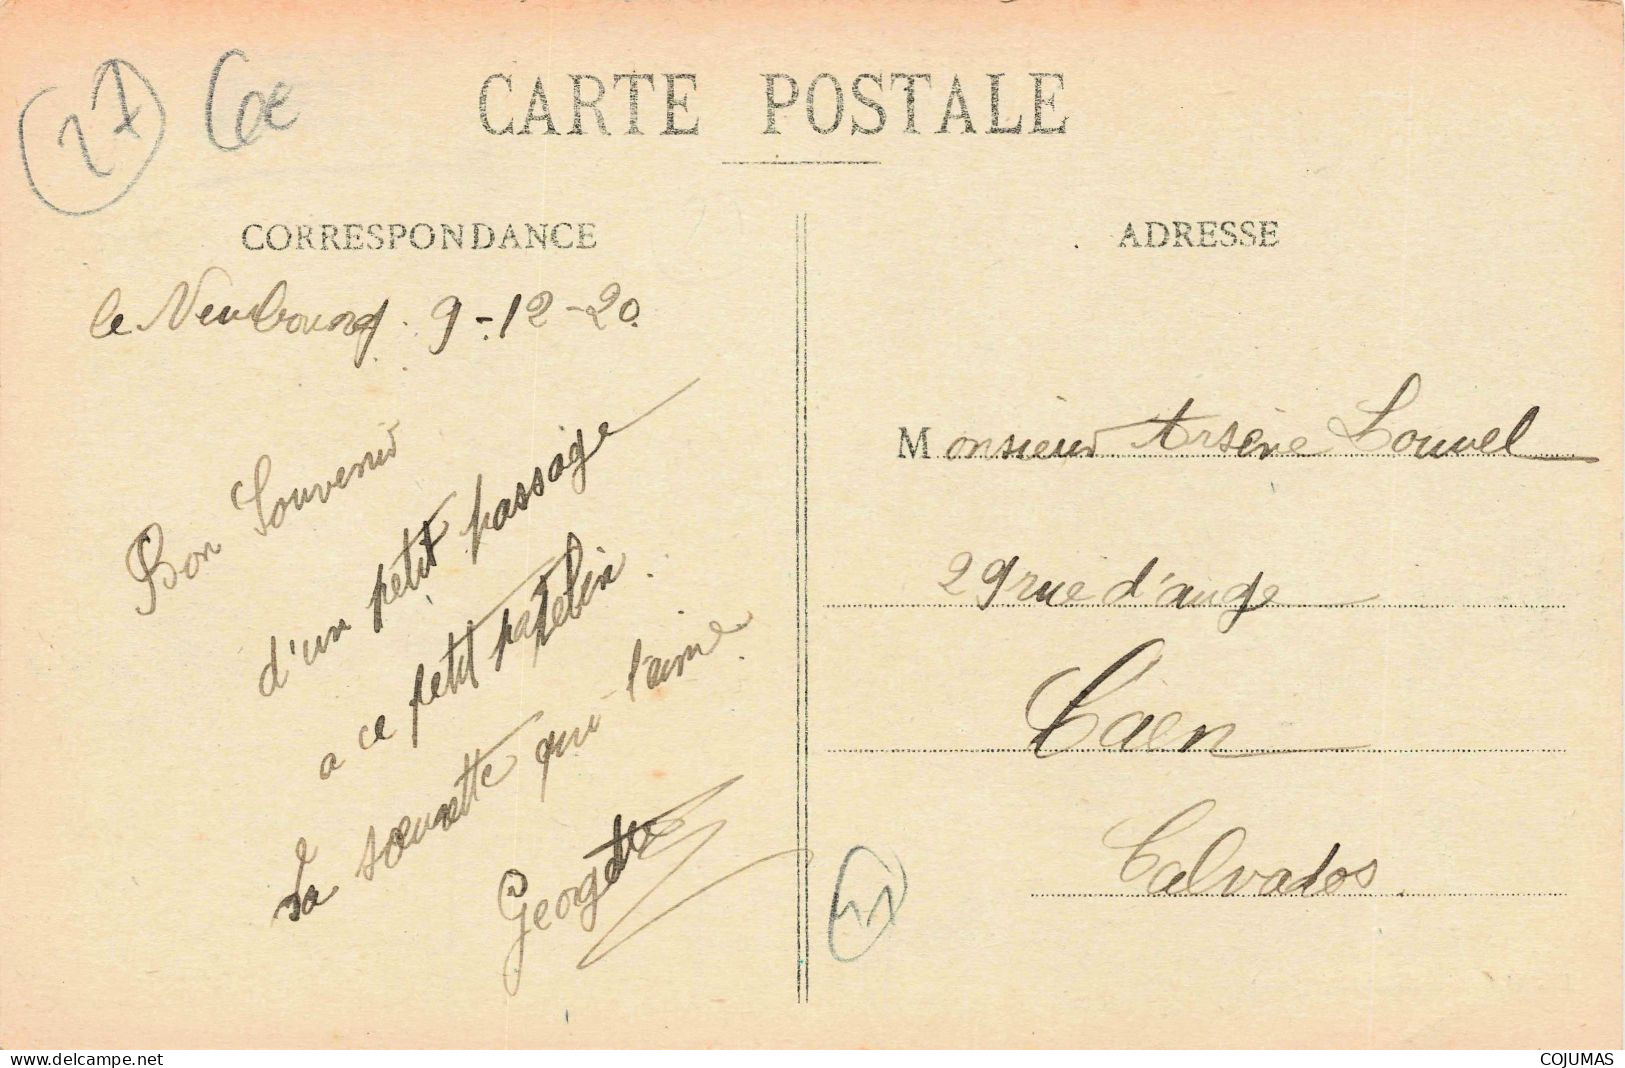 27 6€
CARTE POSTALE
CORRESPONDANCE
le Neubourg. 9-12-20.
Bon Souvenir
d'un petit passage
a ce petit patelin.
Ta sœurette qui t'aime.
Georgette
ADRESSE
Monsieur Arsène Louvel
29 rue d'auge
Caen
Calvados.
www.delcampe.net
COJUMAS